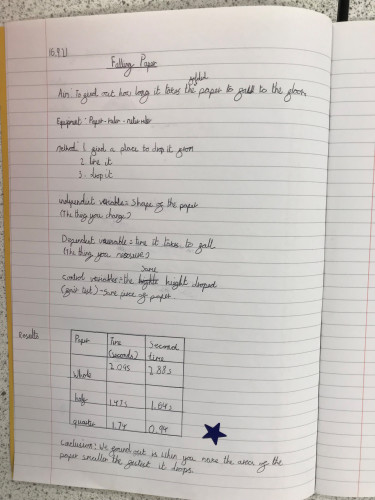 16.9.21
Falling Paper
folded
Aim: To find out how long it takes the paper to fall to the floor.
Equipment: Paper - ruler - meter ruler
method: 1. find a place to drop it from
2. line it
3. drop it
independent variable = shape of the paper
(The thing you change)
Dependent variable = time it takes to fall
(The thing you measure)
same
control variables = the height dropped
(fair test) - same piece of paper
Results
Paper Time (seconds) Second time
Whole 2.04s 2.88s
half 1.47s 1.64s
quarter 1.74 0.94
Conclusion: We found out is when you make the area of the
paper smaller the fastest it drops.